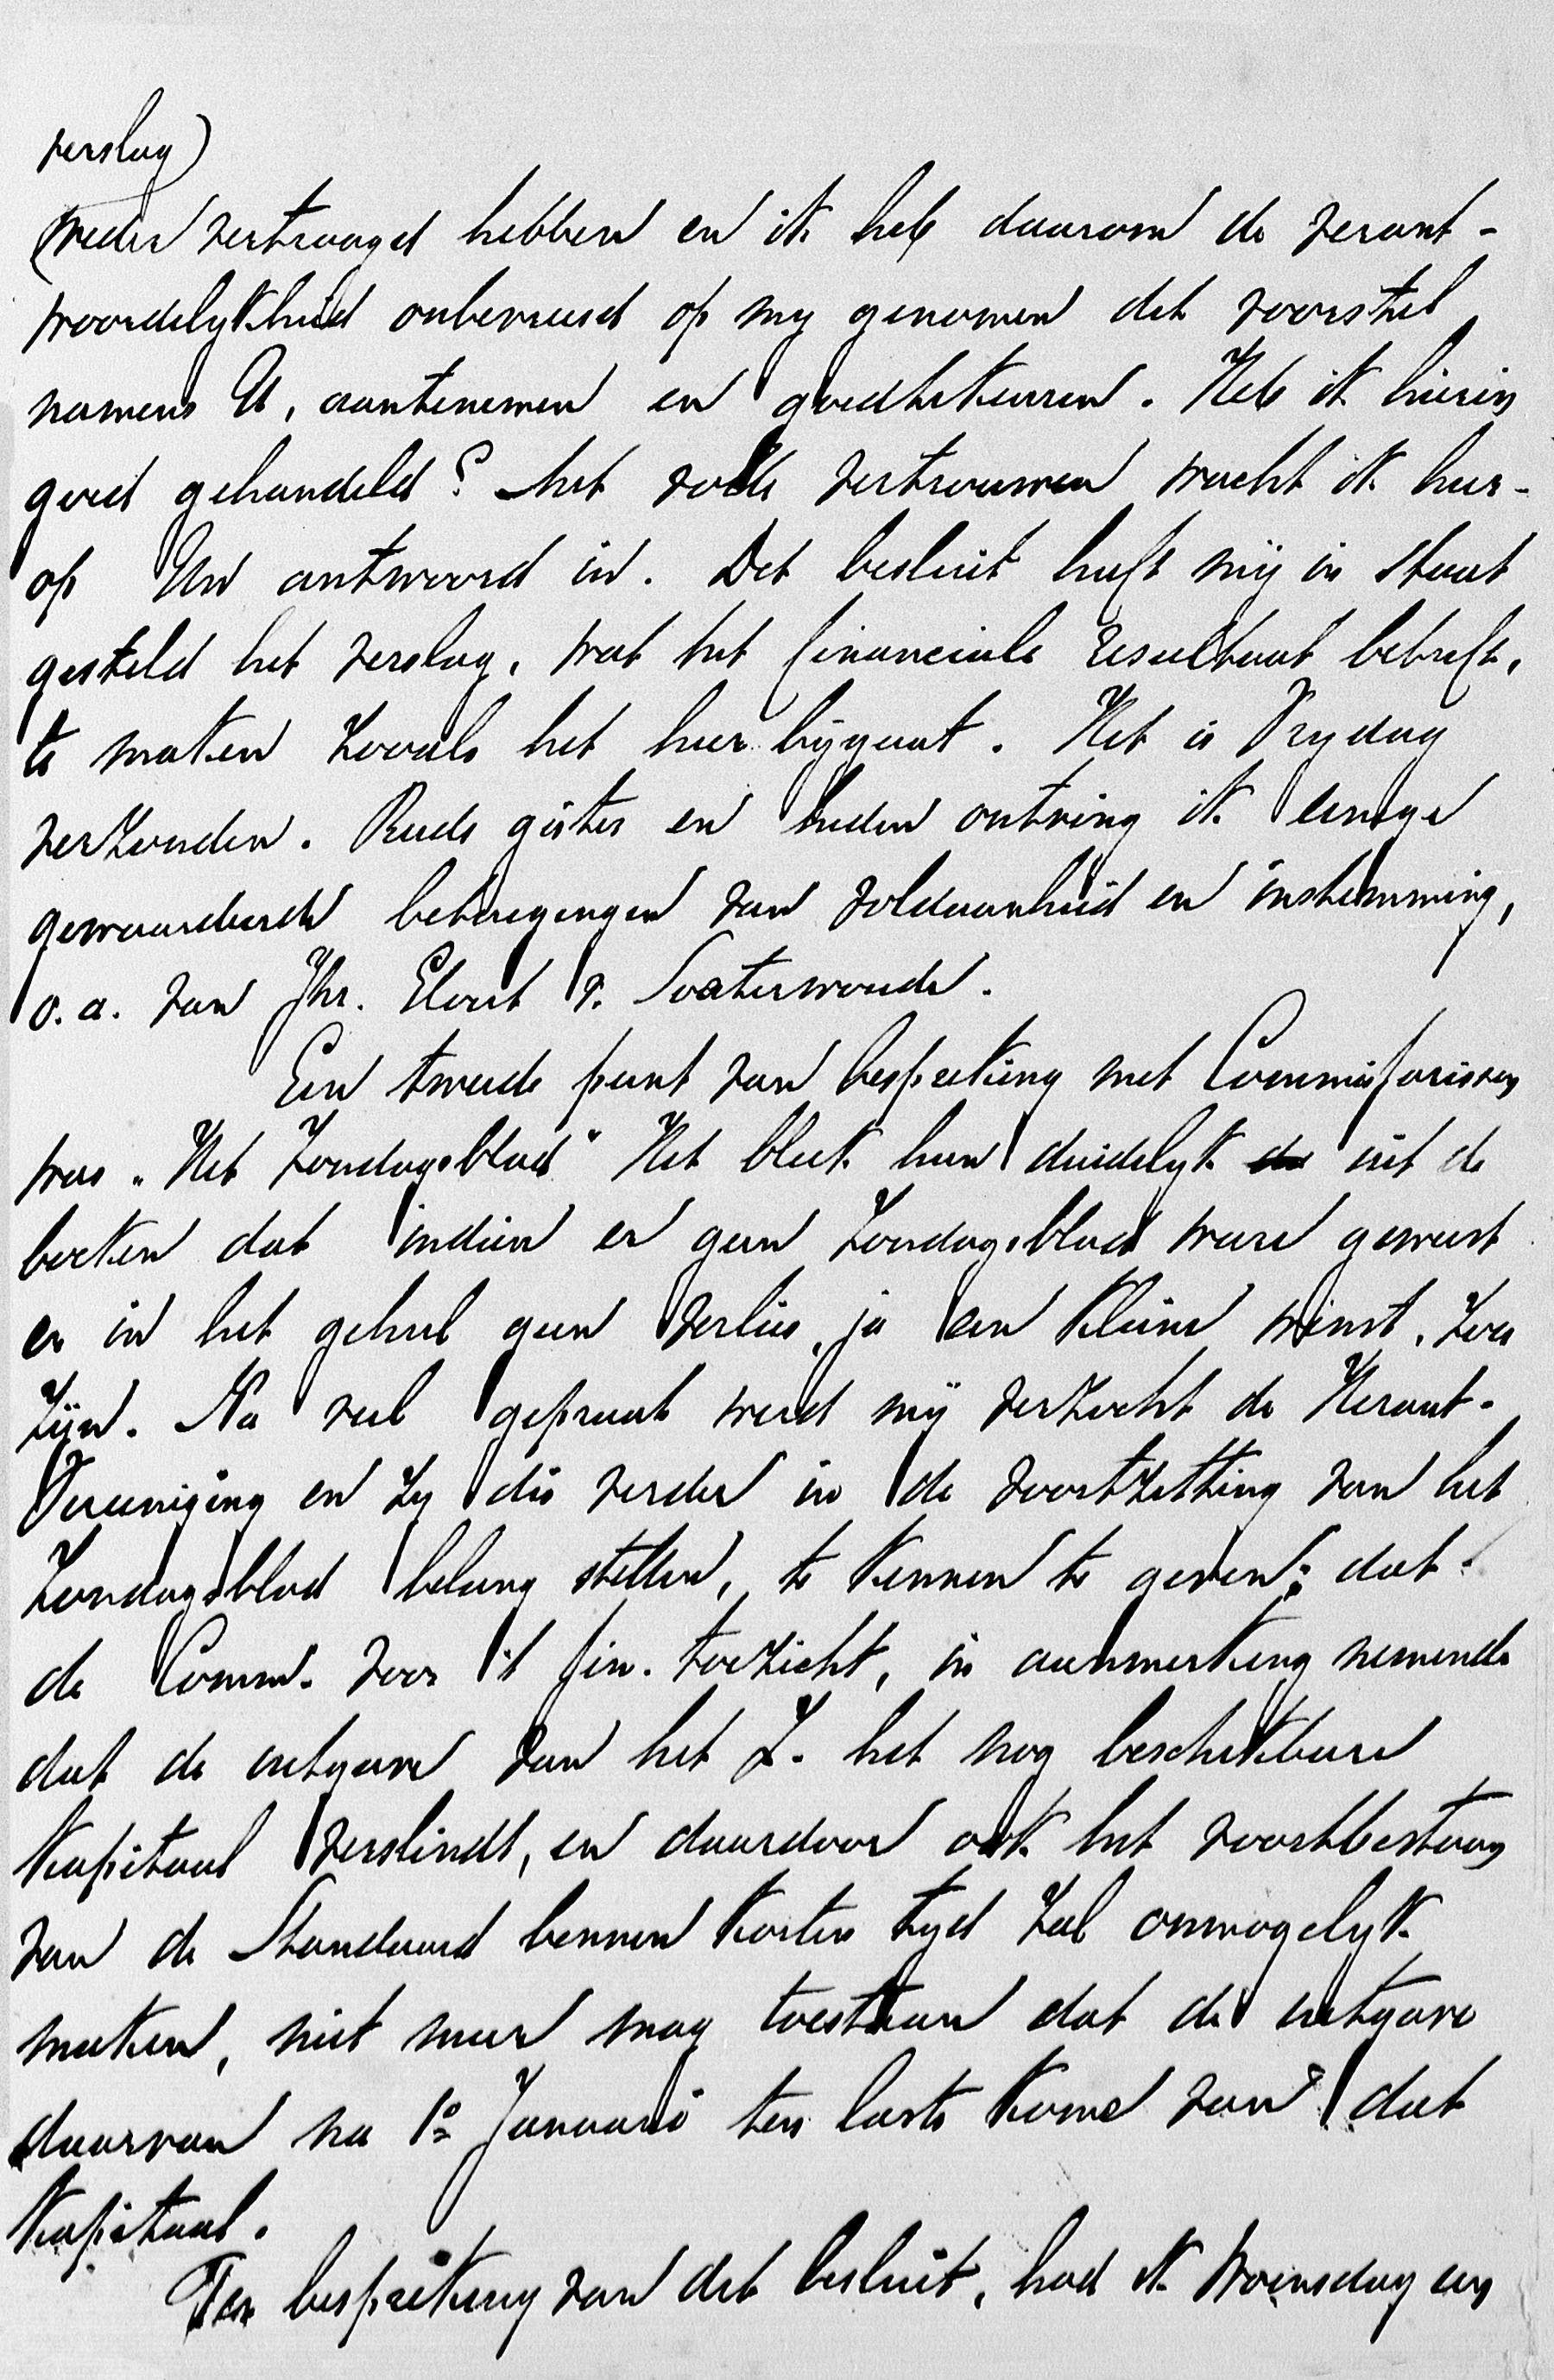 verslag)
(weder vertraagd hebben en ik heb daarom de verant-
woordelykheid onbevreesd op my genomen dit voorstel
namens U, aantenemen en goedtekeuren. Heb ik hierin
goed gehandeld? Met volle vertrouwen wacht ik hier-
op Uw antwoord in. Dit besluit heeft mij in staat
gesteld het verslag, wat het financieele resultaat betreft,
te maken zooals het hier bijgaat. Het is Vrydag
verzonden. Reeds gister en heden ontving ik eenige
gewaardeerde betuigingen van voldaanheid en instemming,
o.a. van Jhr. Elout v. Soeterwoude.
Een tweede punt van bespreking met Commissarissen
was "Het Zondagsblad" Het bleek hun duidelyk uit de
boeken dat indien er geen Zondagsblad ware geweest
er in het geheel geen verlies, ja een kleine winst, zou
zijn. Na veel gepraat werd mij verzocht de Heraut-
Vereeniging en zy die verder in de voortzetting van het
Zondagsblad belang stellen, te kennen te geven: dat
de Comm. voor 't fin. toezicht, in aanmerking nemende
dat de uitgave van het Z. het nog beschikbare
Kapitaal verslindt, en daardoor ook het voortbestaan
van de Standaard binnen korten tyd zal onmogelyk
maken, niet meer mag toestaan dat de uitgave
daarvan na 1º Januari ten laste kome van dat
Kapitaal.
Ter bespreking van dit besluit, had ik Woensdag een